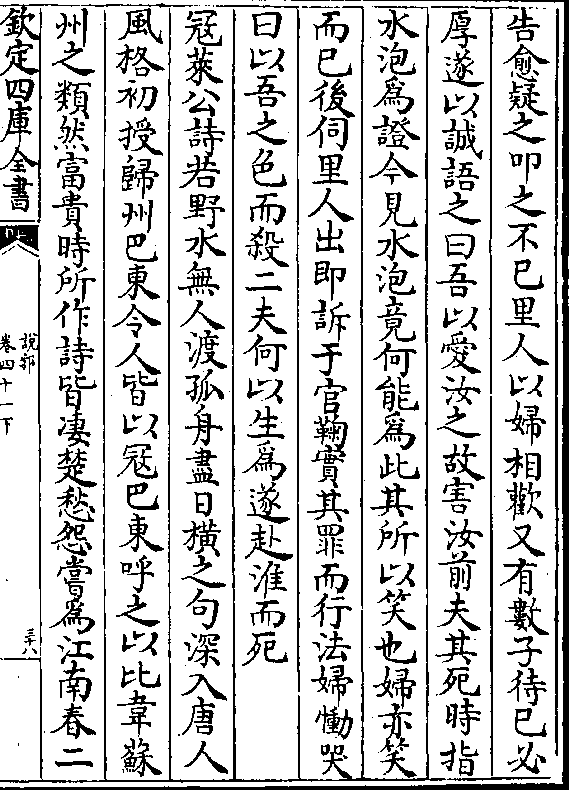 告愈疑之叩之不已里人以婦相歡又有數子待已必
厚遂以誠語之曰吾以愛汝之故害汝前夫其死時指
水泡爲證今見水泡竟何能爲此其所以笑也婦亦笑
而已後伺里人出即訴于官鞫實其罪而行法婦慟哭
曰以吾之色而殺二夫何以生爲遂赴淮而死
冦萊公詩若野水無人渡孤舟盡日橫之句深入唐人
風格初授歸州巴東令人皆以冦巴東呼之以比韋蘇
州之類然富貴時所作詩皆凄楚愁怨嘗爲江南春二
欽定四庫全書
說郛
卷四十一下
三十八